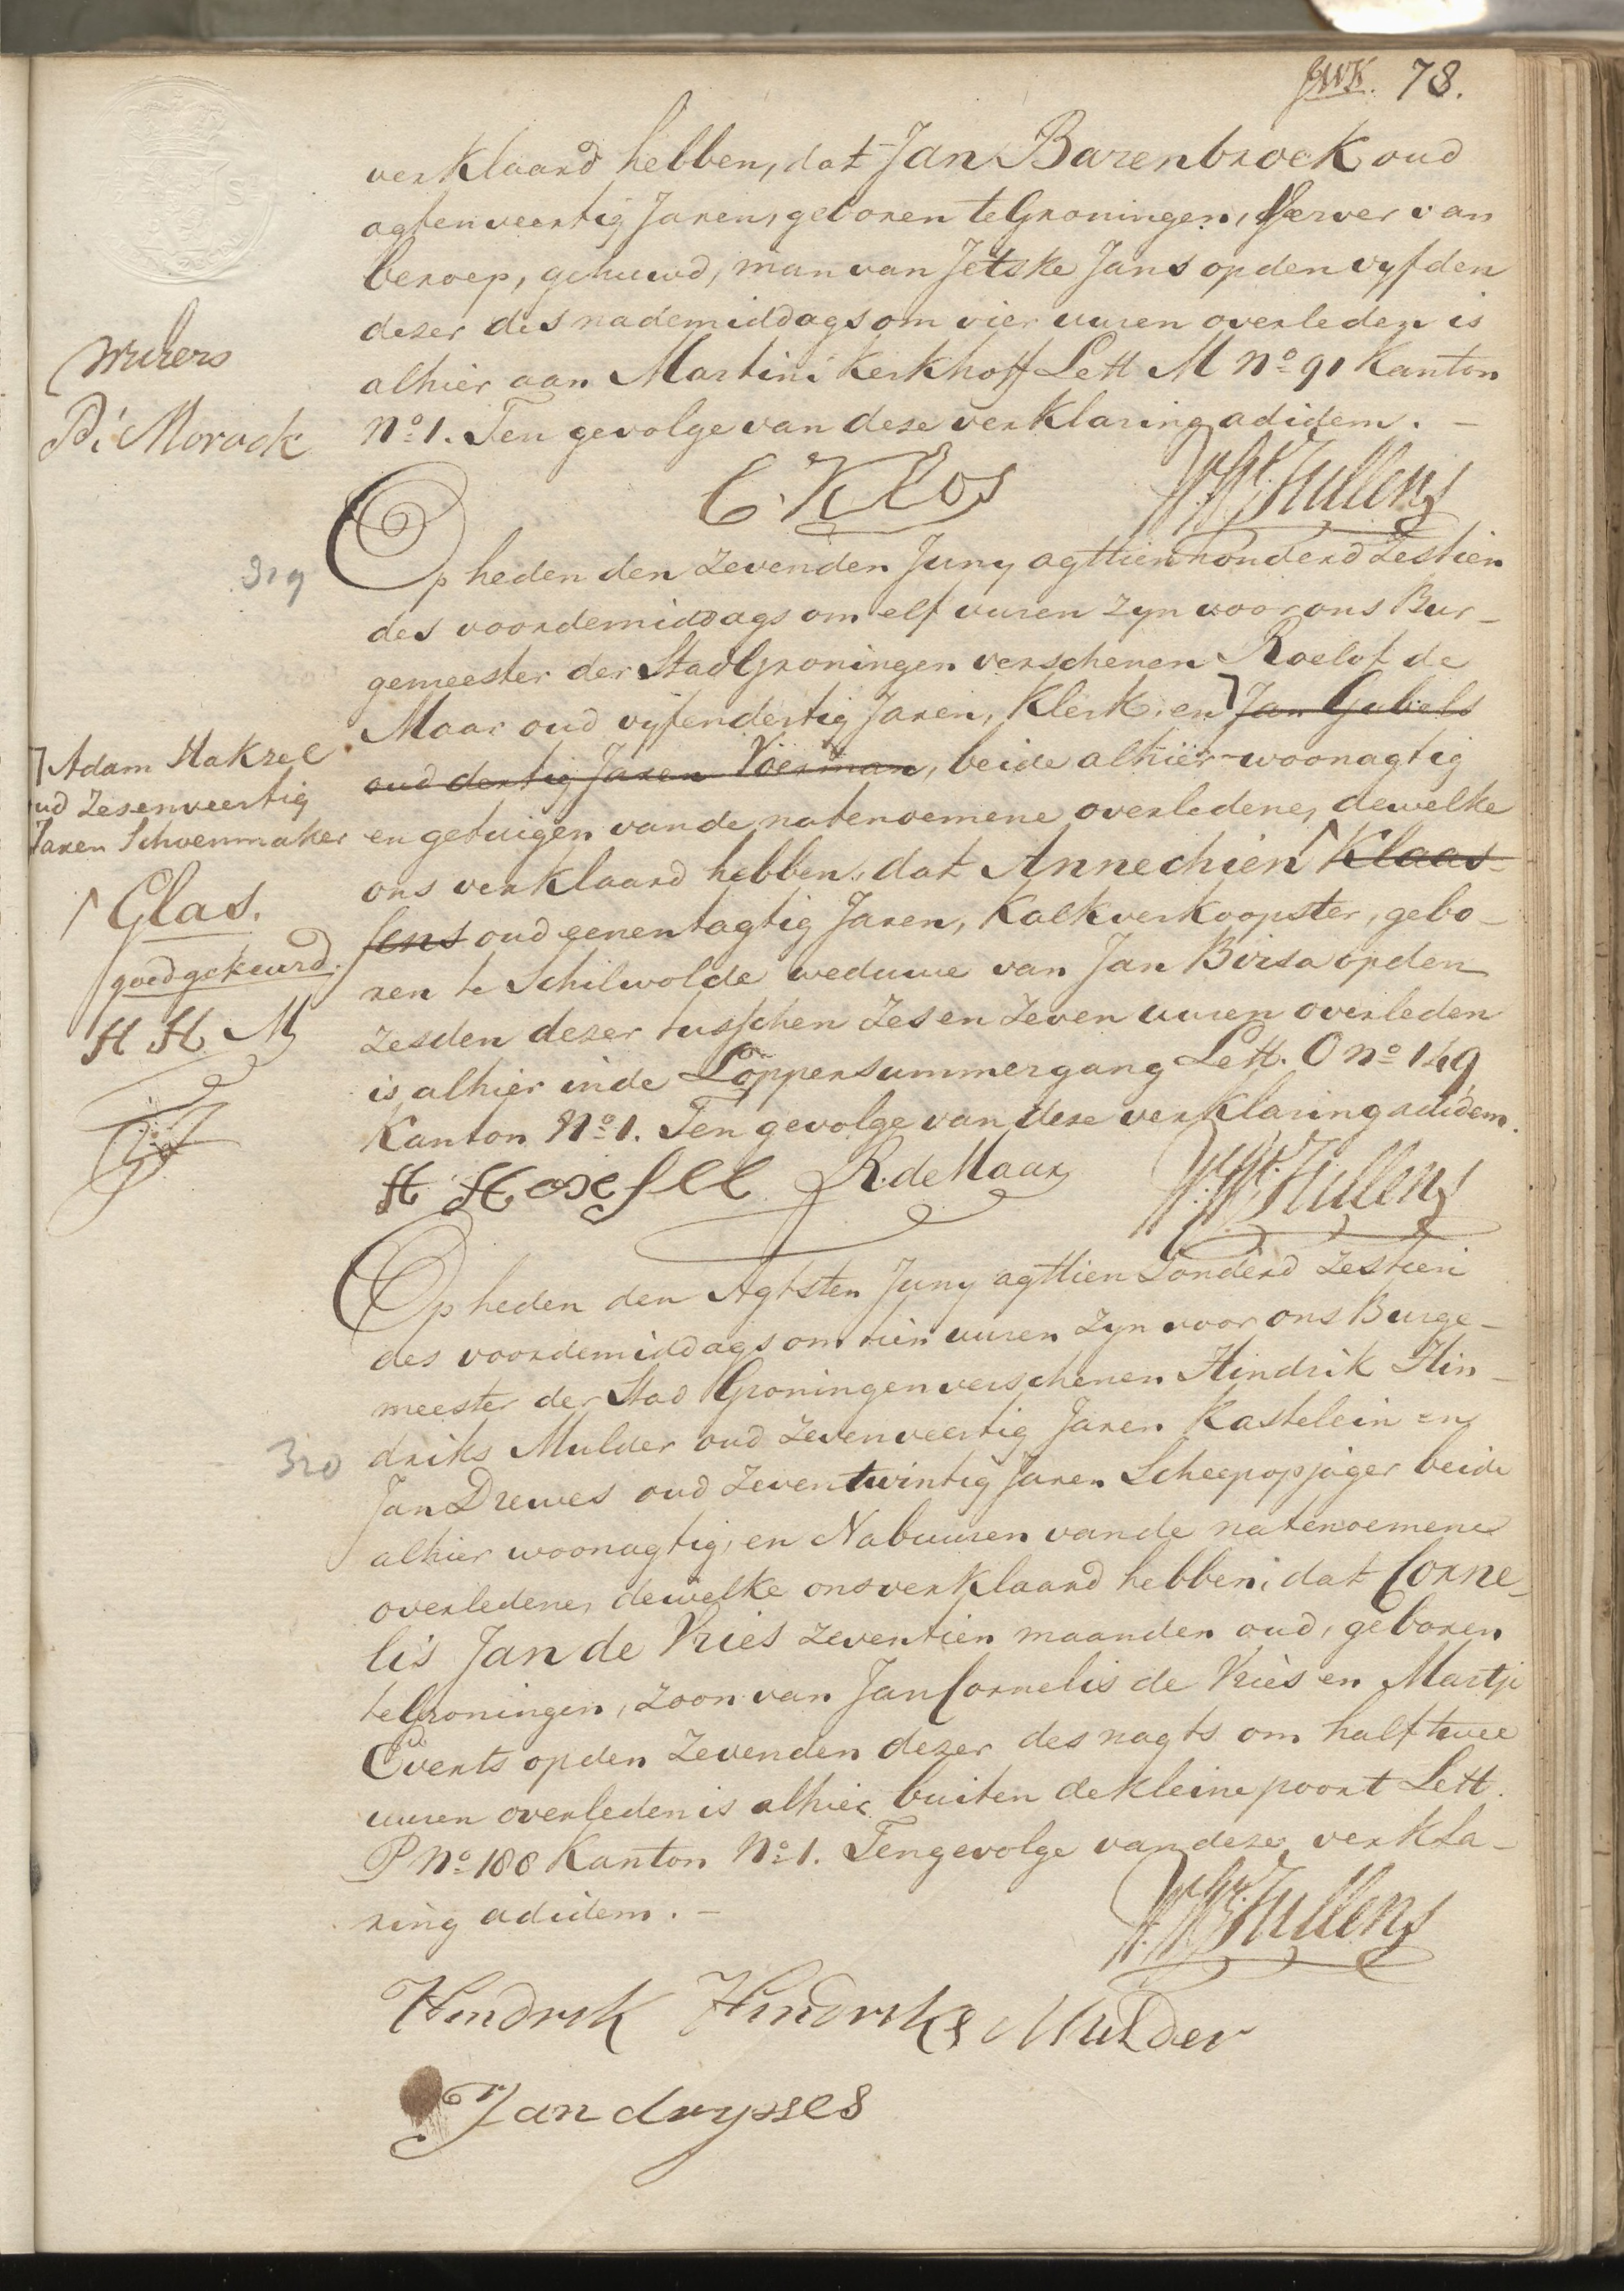 78.
verklaard hebben, dat Jan Barenbroek oud
agtenveertig Jaren, geboren te Groningen, Verver van
beroep, gehuwd, man van Jetske Jans op den vyfden
dezer des nademiddags om vier uuren overleden is
alhier aan Martini Kerkhoff Lett M No 91 Kanton
No 1. Ten gevolge van deze verklaring adidem. -
C. Klos
319
Op heden den Zevenden Juny agttienhonderd Zestien
des voordemiddags om elf uuren zyn voor ons Bur-
gemeester der Stad Groningen verschenen Roelof de
Maar oud vyfendertig Jaren, Klerk, en Jan Gubels
oud dertig Jaren Voerman, beide alhier woonagtig
en getuigen van de natenoemene overledene, dewelke
ons verklaard hebben, dat Annechien Klaas-
sens oud eenentagtig Jaren, Kalkverkoopster, gebo-
ren te Schilwolde weduwe van Jan Birsa op den
Zesden dezer tusschen Zes en Zeven uuren overleden
is alhier in de Loppersummergang Lett. O No 149
Kanton No 1. Ten gevolge van deze verklaring adidem.
Adam Hakzel
ud Zesenveertig
Jaren Schoenmaker
Glas.
goedgekeurd.
H H M
R. de Maar
320
Op heden den Agtsten Juny agttienhonderd Zestien
des voordemiddags om tien uuren Zyn voor ons Burge-
meester der Stad Groningen verschenen Hindrik Hin-
driks Mulder oud Zevenveertig Jaren Kastelein en
Jan Drewes oud Zeventwintig Jaren Scheepopjager beide
alhier woonagtig, en Nabuuren van de natenoemene
overledene, dewelke ons verklaard hebben, dat Corne-
lis Jan de Vries zeventien maanden oud, geboren
te Groningen, zoon van Jan Cornelis de Vries en Martje
Everts op den Zevenden dezer des nagts om half twee
uuren overleden is alhier buiten de kleine poort Lett.
P No 188 Kanton No 1. Ten gevolge van deze verkla-
ring adidem. -
Hindrik Hindriks Mulder
Jan druyses